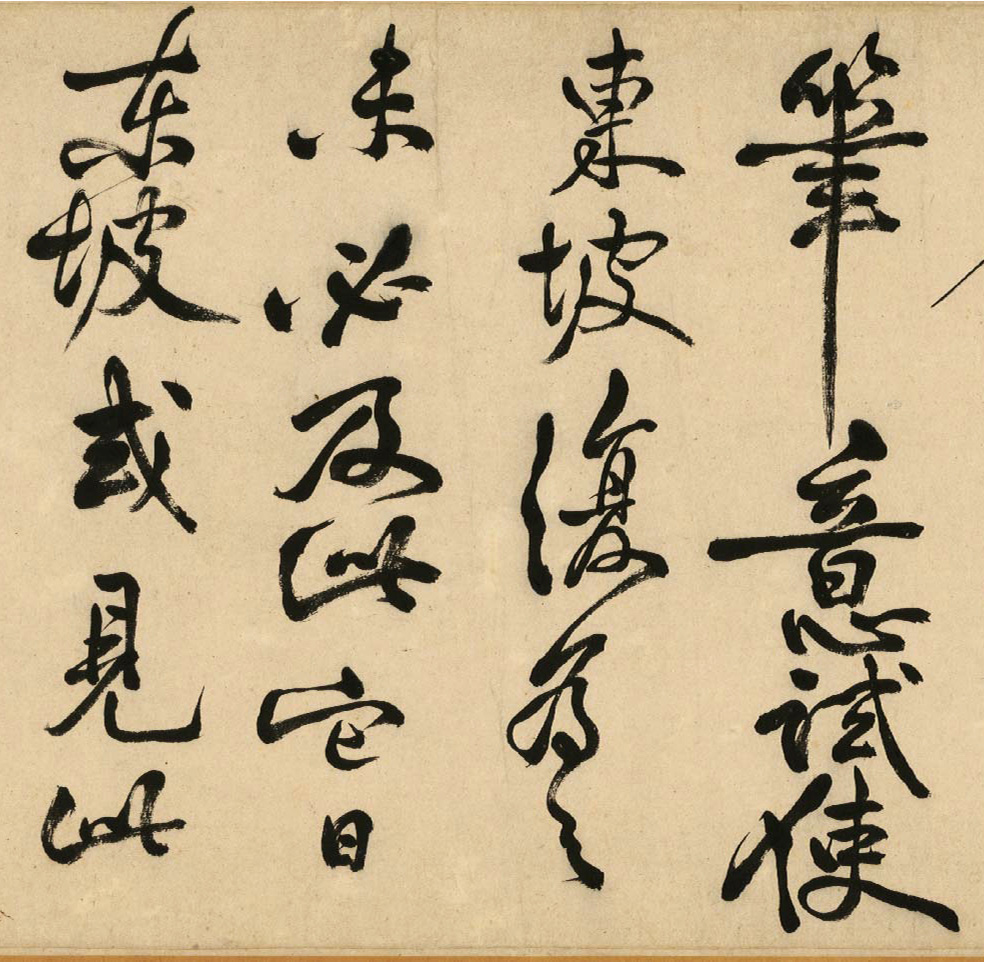 筆意試使
東坡復為之
未必及此它日
東坡或見此